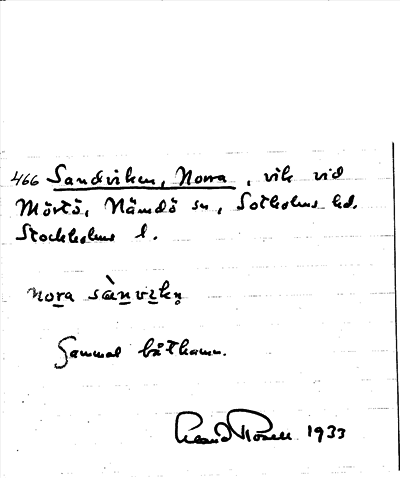 466 Sandviken, Norra, vik vid
Mörtö, Nämdö sn, Sotholms hd.
Stockholms l.
nora sànvikn̥
Gammal båthamn.
1933